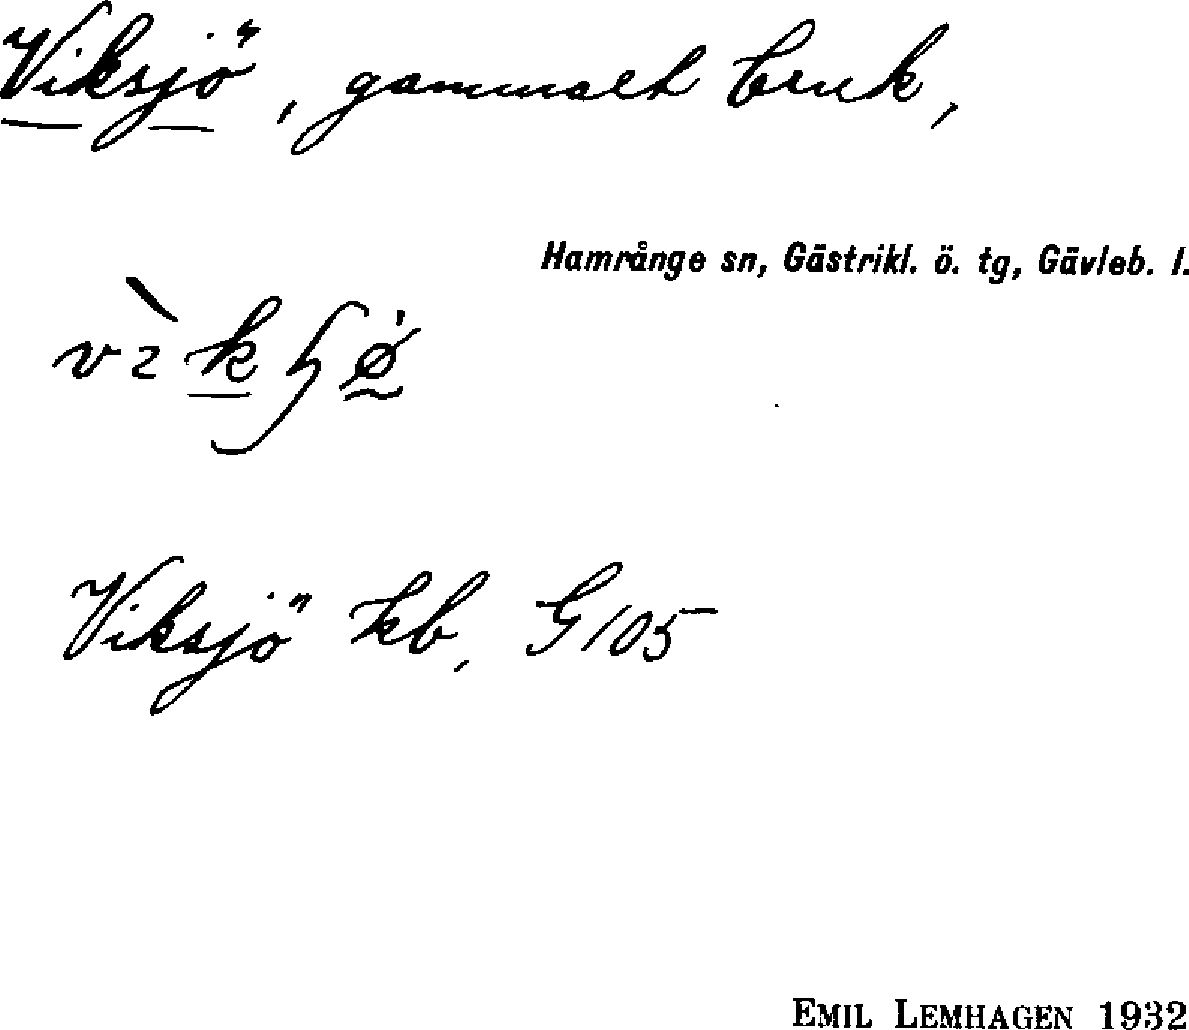 Viksjö, gammalt bruk,
Hamrånge sn, Gästrikl. ö. tg, Gävleb. l.
Viksjö kb, G105
EMIL LEMHAGEN 1932